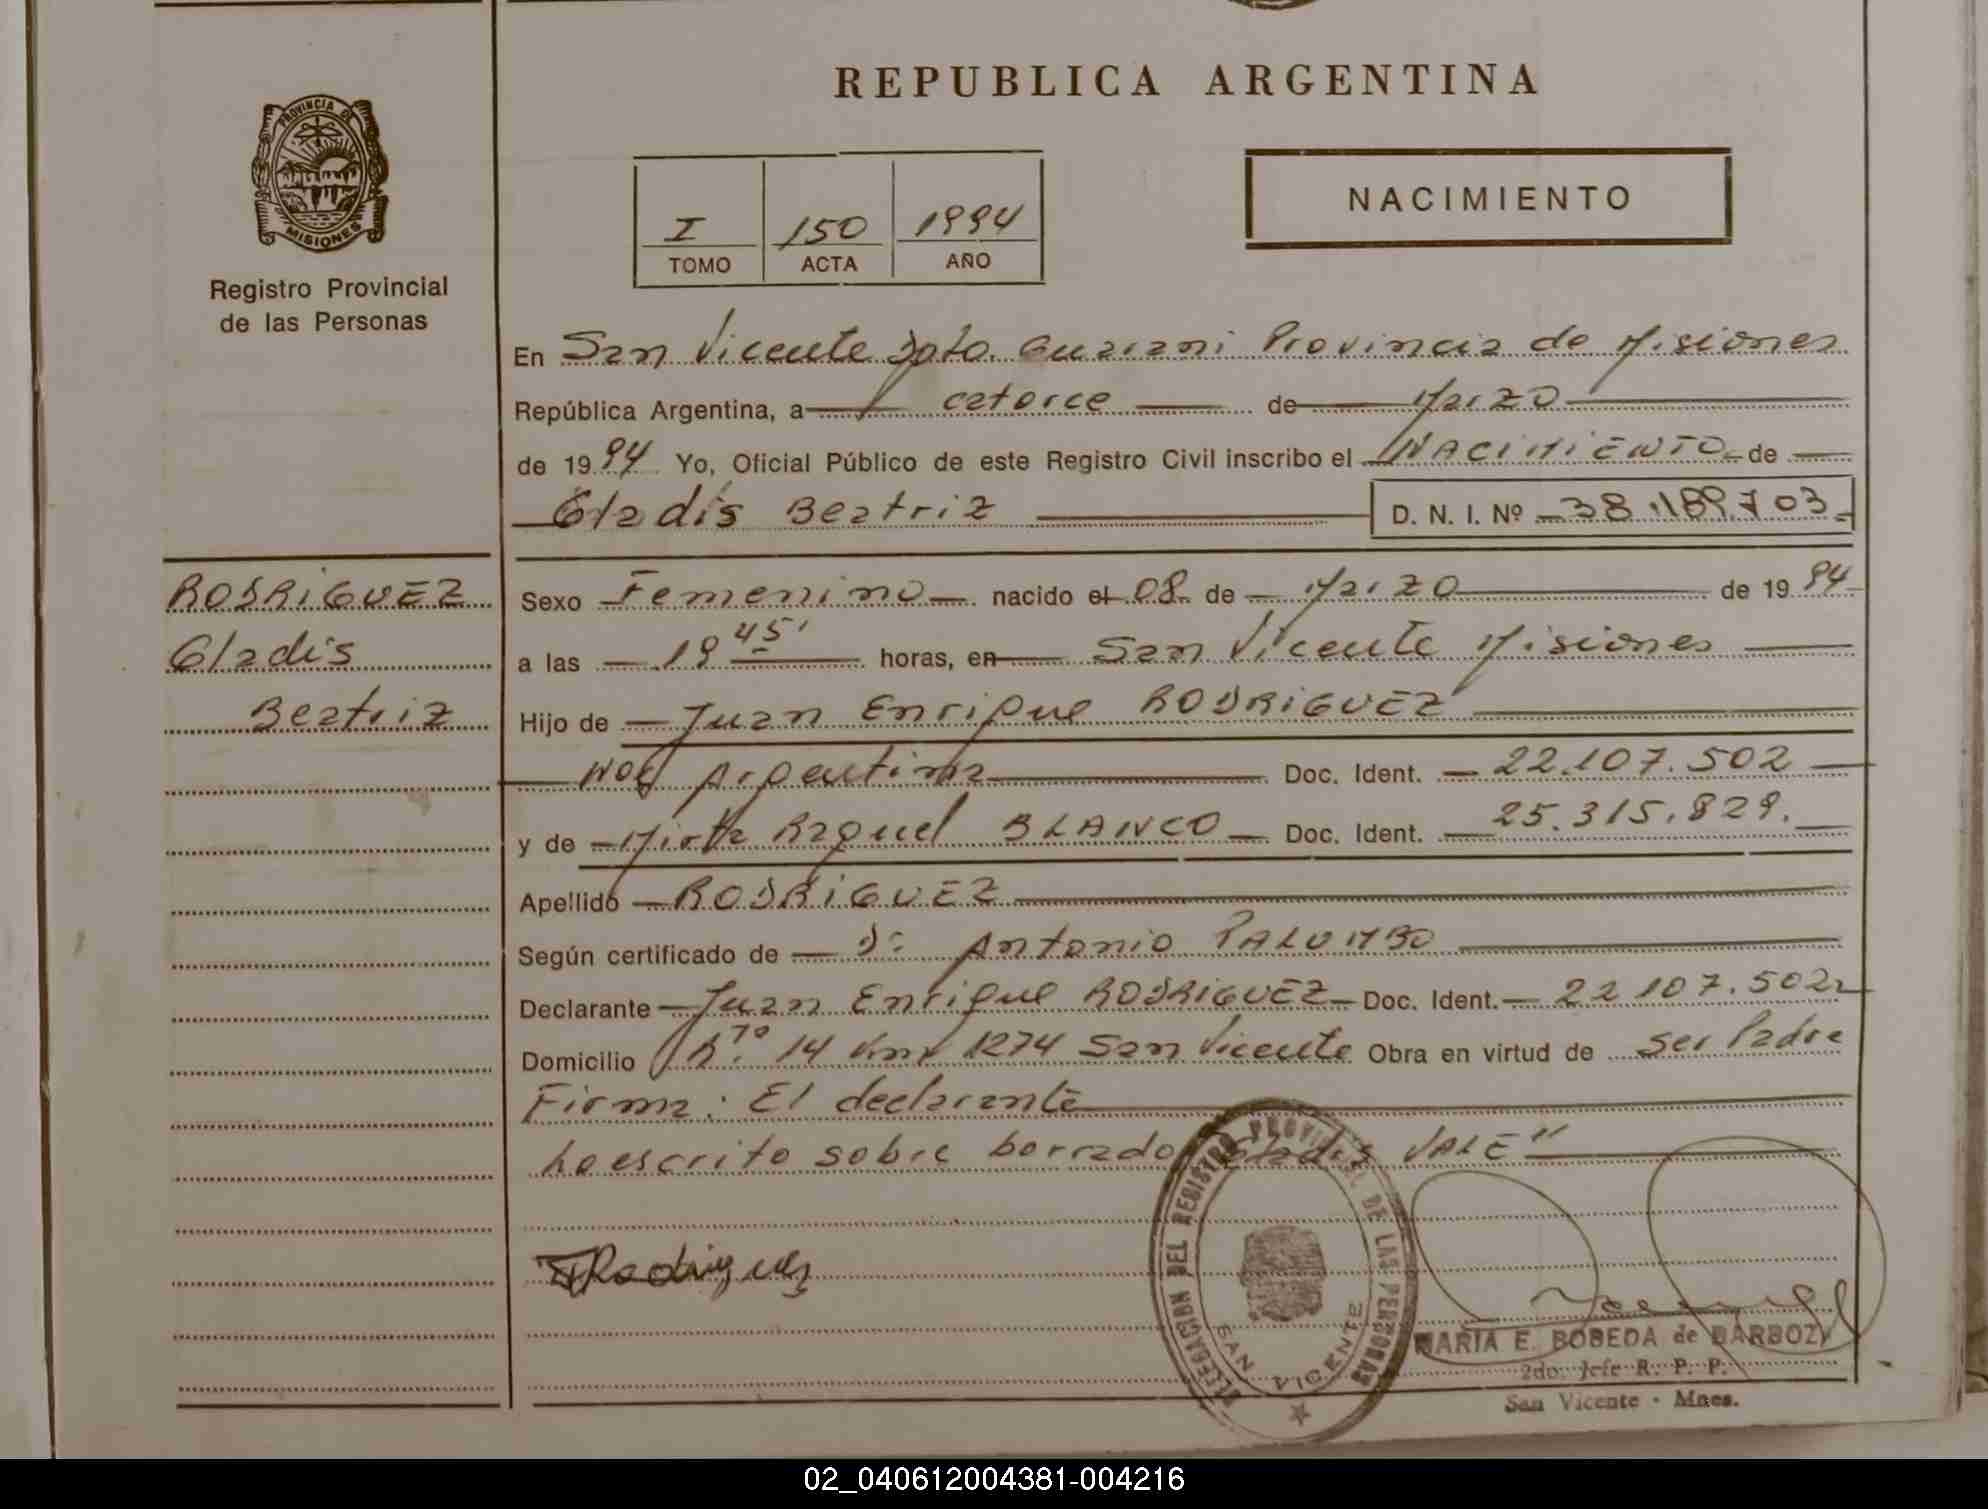 REPUBLICA ARGENTINA
PROVINCIA DE
MISIONES
Registro Provincial
de las Personas
I 150 1994
TOMO ACTA AÑO
NACIMIENTO
En San Vicente Dpto. Guarani Provincia de Misiones
República Argentina, a catorce de Marzo
de 1994 Yo, Oficial Público de este Registro Civil inscribo el NACIMIENTO de
Gladis Beatriz D. N. I. Nº 38.189.703
RODRIGUEZ
Gladis
Beatriz
Sexo Femenino nacido el 08 de Marzo de 1994
a las 19 45' horas, en San Vicente Misiones
Hijo de Juan Enrique RODRIGUEZ
Argentina Doc. Ident. 22.107.502
y de Mirta Raquel BLANCO Doc. Ident. 25.315.829.
Apellido RODRIGUEZ
Según certificado de Dr. Antonio PALUMBO
Declarante Juan Enrique RODRIGUEZ Doc. Ident. 22 107.502
Domicilio R. 14 Km 1274 San Vicente Obra en virtud de ser Padre
Firma: El declarante
Lo escrito sobre borrado Gladis VALE"
Rodriguez
DELEGACION DEL REGISTRO PROVINCIAL DE LAS PERSONAS
SAN VICENTE
MARIA E. BOBEDA de BARBOZA
2do. Jefe R. P. P.
San Vicente - Mnes.
02_040612004381-004216